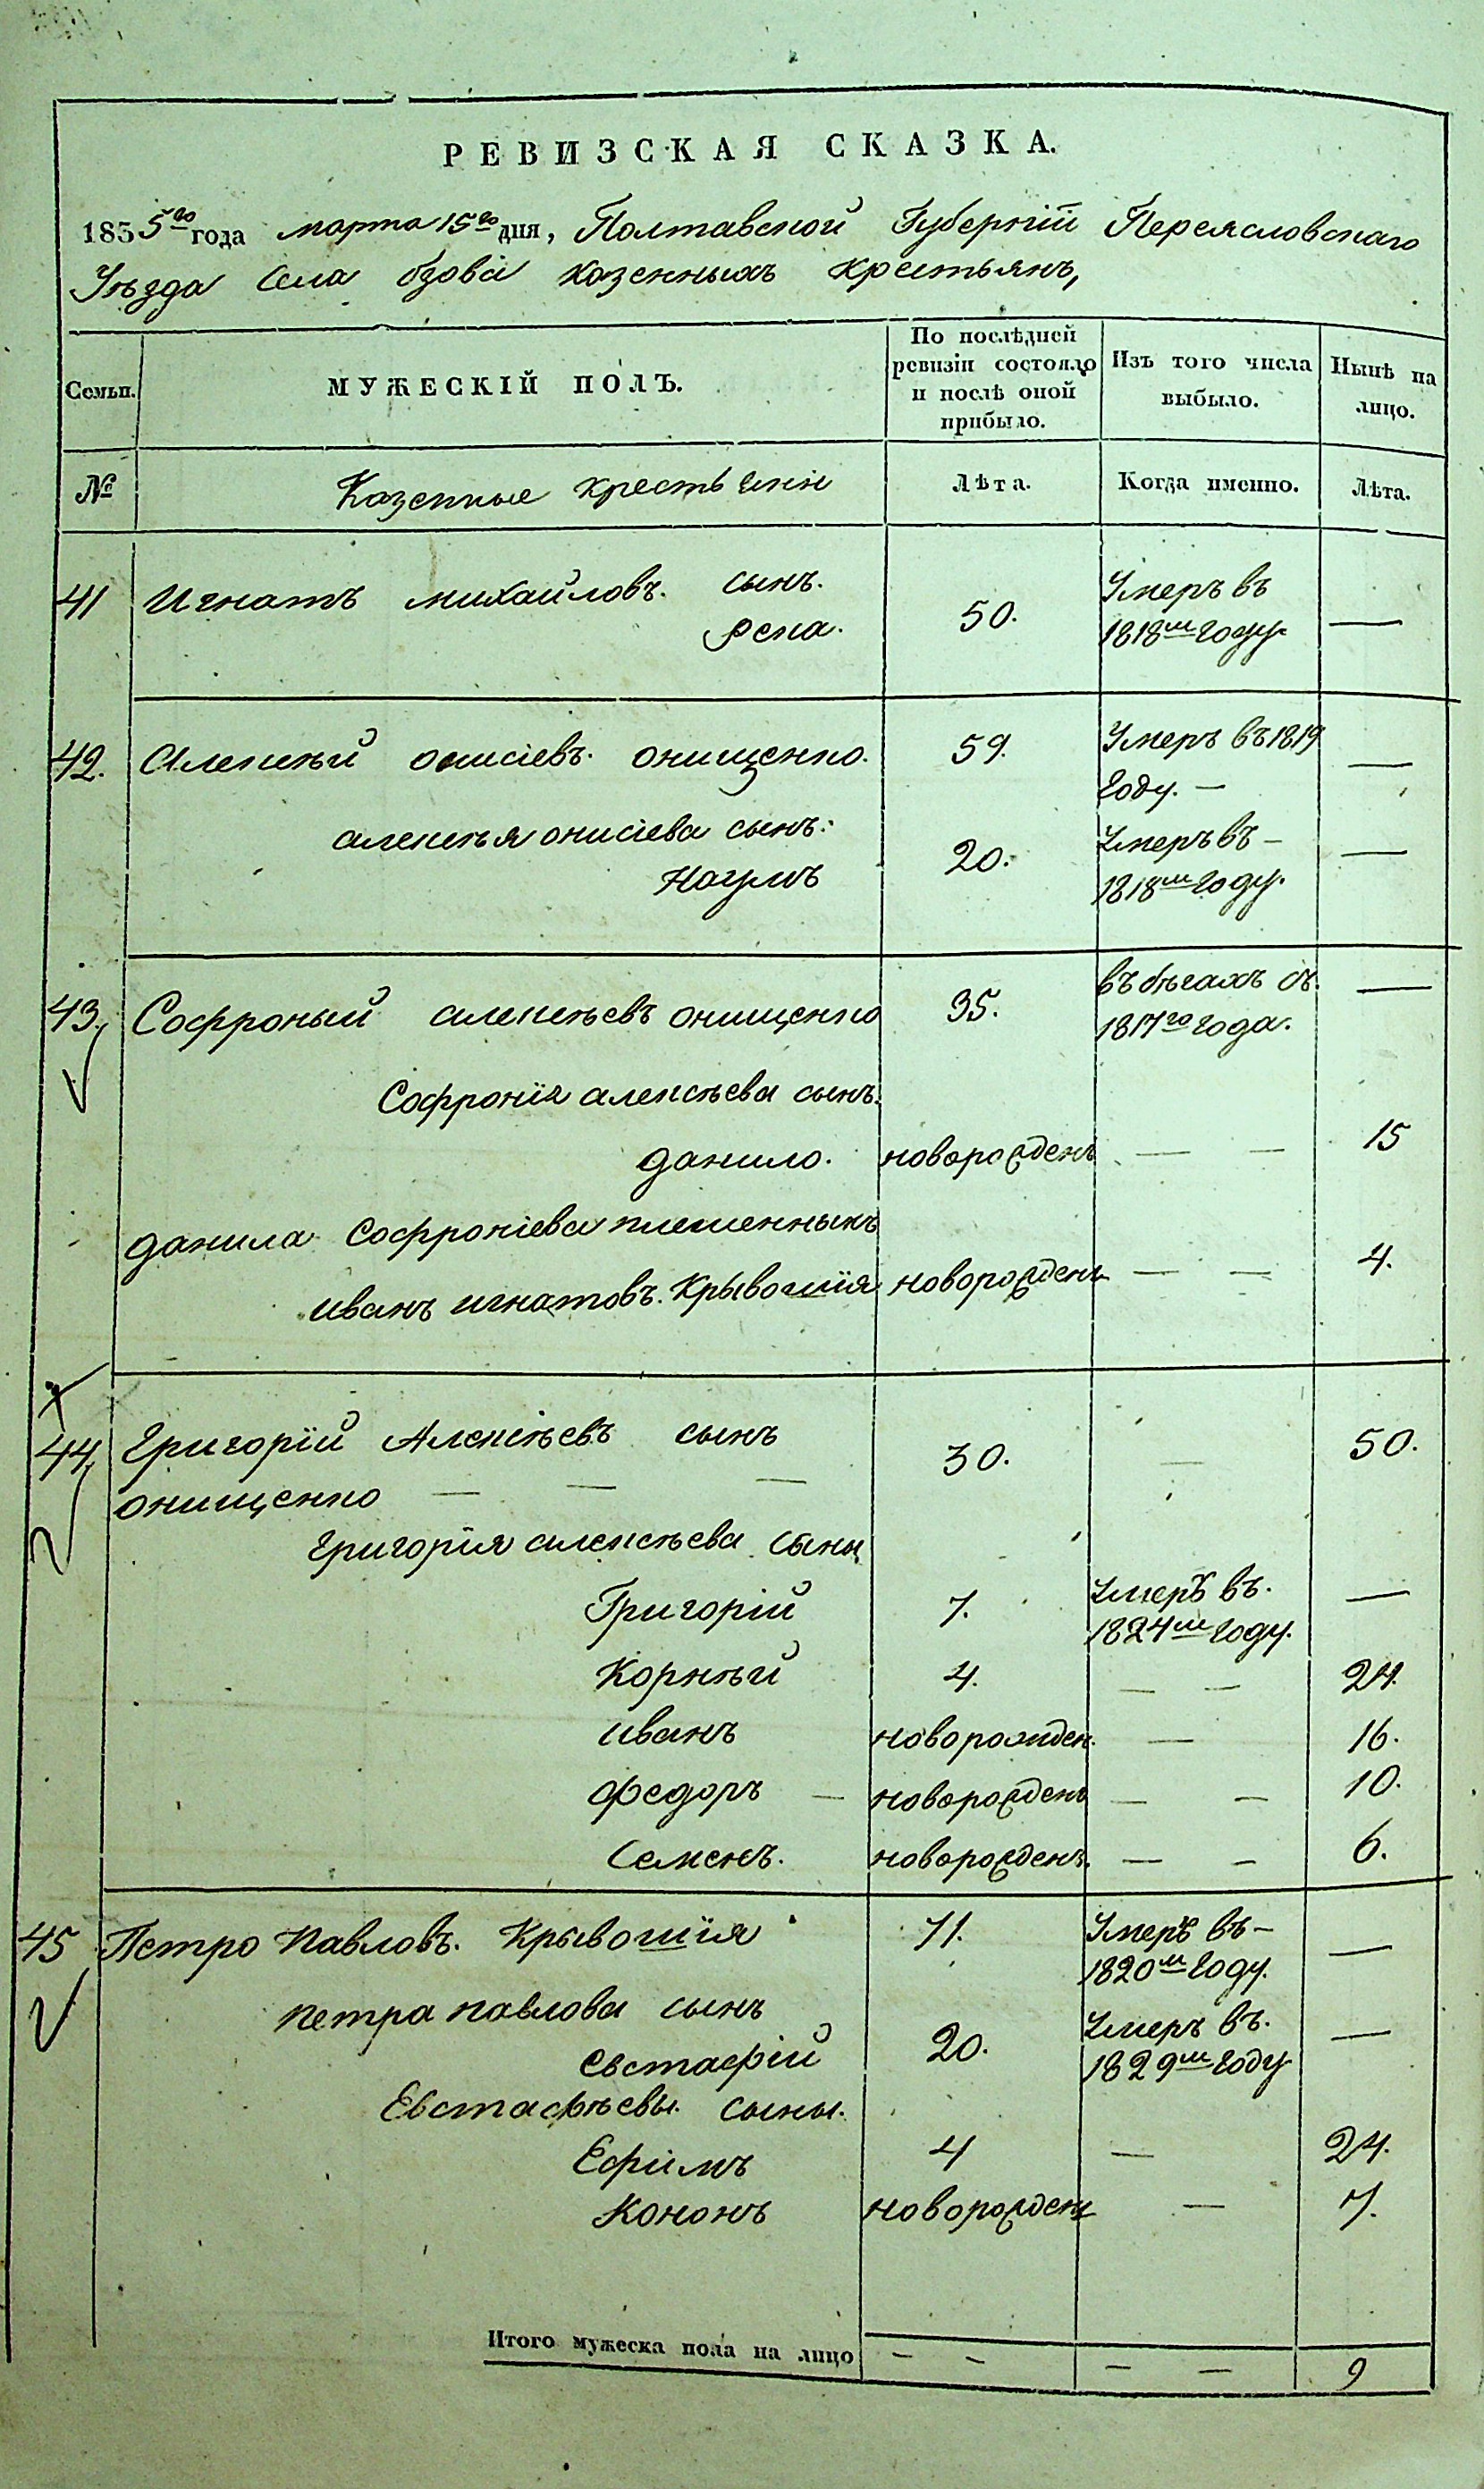 РЕВИЗСКАЯ СКАЗКА.
1835го года марта 15го дня, Полтавской Губерніи Переясловскаго
Уѣзда Села Озова Казенныхъ крестьянъ,
Семьи. МУЖЕСКІЙ ПОЛЪ. По послѣдней ревизіи состояло и послѣ оной прибыло. Изъ того числа выбыло. Нынѣ на лицо.
№ Казенные крестьяни Лѣта. Когда именно. Лѣта.
41 Игнатъ михайловъ. сынъ. Умеръ въ
Рена. 50. 1818м году —
42. Алексѣй онисіевъ. онищенко. 59. Умеръ въ 1819 —
году. —
алексѣя онисіева сынъ. Умеръ въ —
Наумъ 20. 1818м году. —
43. Софроный алексѣевъ онищенко 35. въ бѣгахъ съ —
1817го года.
Софронія алексѣева сынъ.
данило. новорожденъ — — 15
данила Софроніева племенникъ
иванъ игнатовъ. Крывошія новорожденъ — — 4.
44. Григорій Алексѣевъ сынъ 30. — 50.
онищенко — — —
Григорія алексѣева сыны
Григорій 7. Умеръ въ. —
1824м году.
Корнѣй 4. — — 24.
иванъ новорожден. — 16.
Федоръ — новорожденъ — — 10.
Семенъ. новорожденъ. — — 6.
45 Петро Павловъ. Крывошія 71. Умеръ въ — —
1820м году.
петра павлова сынъ Умеръ въ.
Евстафій 20. 1829м году —
Евстафѣевы. сыны.
Ефимъ 4 — 24.
Кононъ новорожден — 7.
Итого мужеска пола на лицо — — — — 9